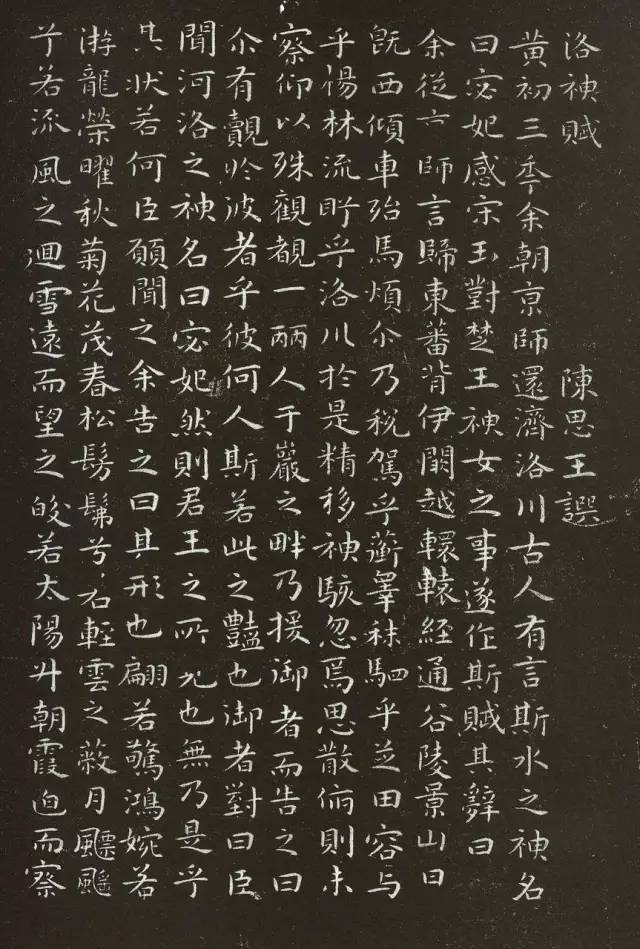 洛神賦 陳思王譔
黄初三秊余朝京師還濟洛川古人有言斯水之神名
曰宓妃感宋玉對楚王神女之事遂作斯賦其辭曰
余從京師言歸東蕃背伊闕越轘轅經通谷陵景山日
既西傾車殆馬煩尒乃稅駕乎蘅皋秣駟乎芝田容與
乎楊林流眄乎洛川於是精移神駭忽焉思散俯則未
察仰以殊觀覩一麗人于巖之畔乃援御者而告之曰
尒有覿於彼者乎彼何人斯若此之豔也御者對曰臣
聞河洛之神名曰宓妃然則君王之所見也無乃是乎
其狀若何臣願聞之余告之曰其形也翩若驚鴻婉若
游龍榮曜秋菊花茂春松髣髴兮若輕雲之蔽月飄颻
兮若流風之迴雪遠而望之皎若太陽升朝霞迫而察